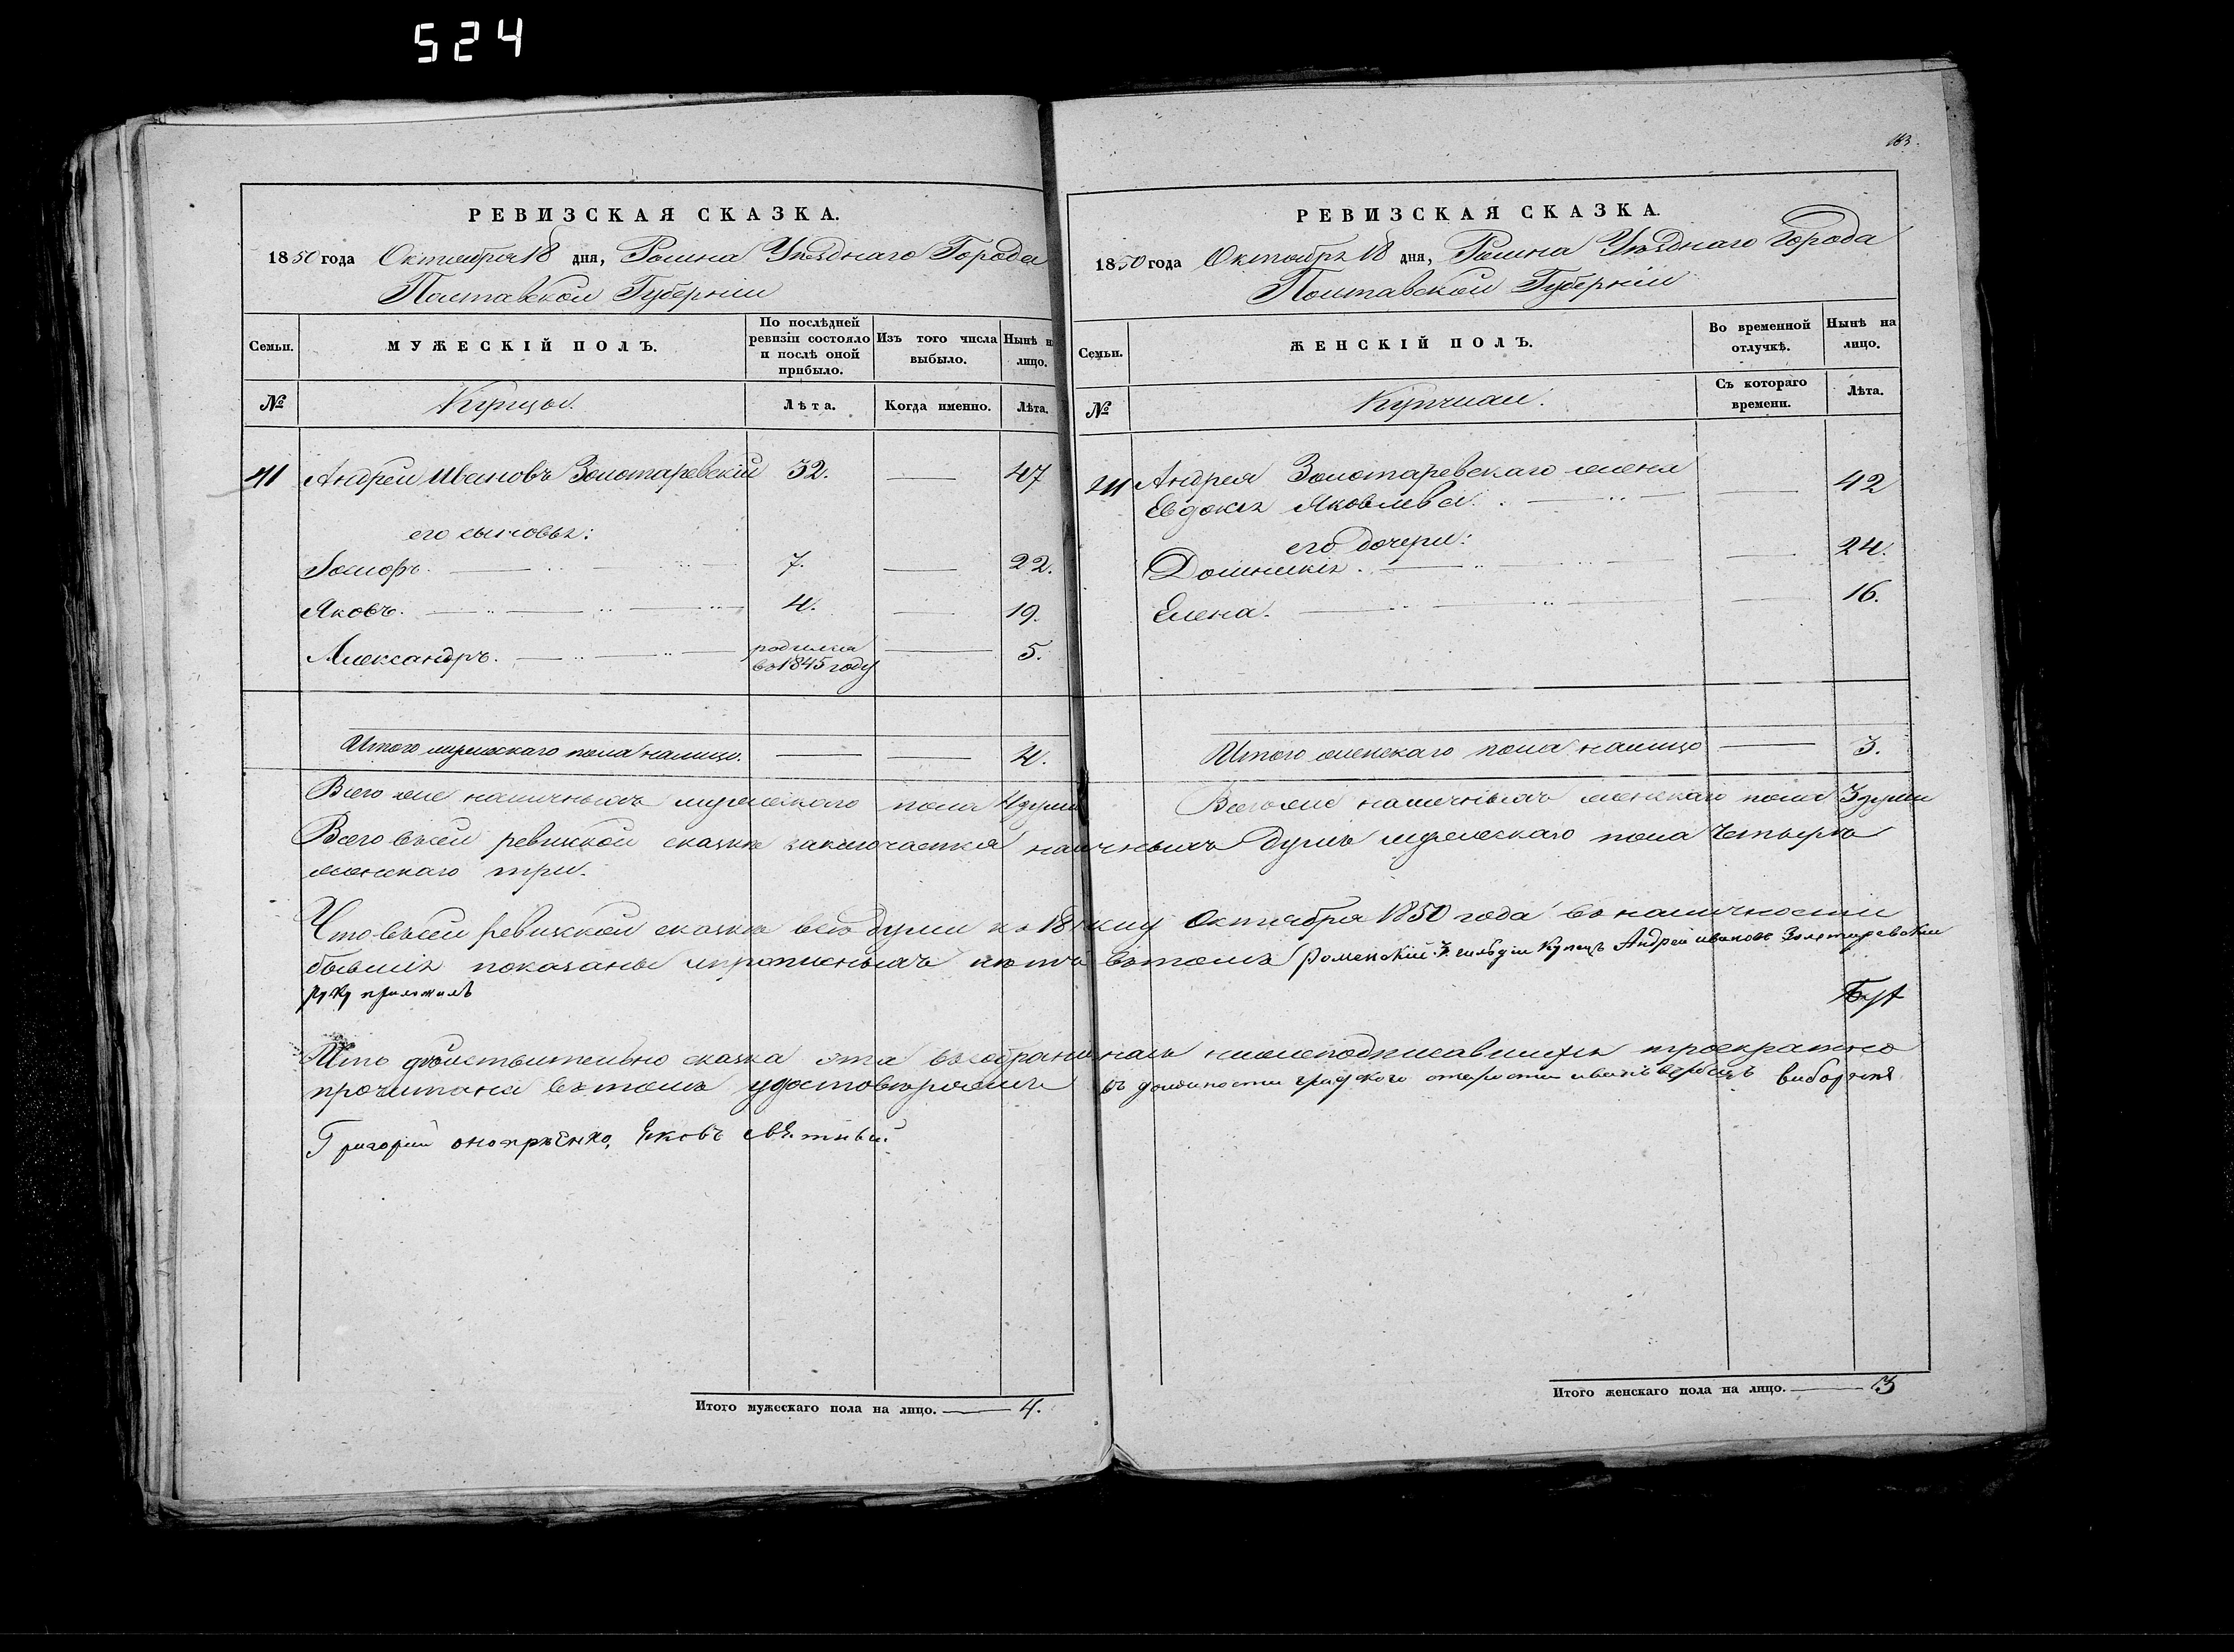 524
183.
РЕВИЗСКАЯ СКАЗКА.
1850 года Октября 18 дня, Ромна Уѣзднаго Города
Полтавской Губерніи
Семьи.
МУЖЕСКІЙ ПОЛЪ.
По послѣдней ревизіи состояло и послѣ оной прибыло.
Изъ того числа выбыло.
Нынѣ н лицо.
№
Купцы.
Лѣта.
Когда именно.
Лѣта.
41 Андрей Ивановъ Золотаревскій 32. — 47
его сыновья:
7. — 22.
Яковъ. 4. — 19.
Александръ. родился въ 1845 году — 5.
Итого мужескаго пола налицо. — — 4.
Всего же наличныхъ мужескаго пола 4 души
РЕВИЗСКАЯ СКАЗКА.
1850 года Октября 18 дня, Ромна Уѣзднаго Города
Полтавской Губерніи
Семьи.
ЖЕНСКІЙ ПОЛЪ.
Во временной отлучкѣ.
Нынѣ на лицо.
№
Съ котораго времени.
Лѣта.
41 Андрея Золотаревскаго жена
Евдокія Яковлева. — 42
его дочери:
Домникія. — 24.
Елена. — 16.
Итого женскаго пола налицо — 3.
Всего же наличныхъ женскаго пола 3 души
Всего въ сей ревизской сказкѣ заключается наличныхъ душъ мужескаго пола четыре
женскаго три.
Что въ сей ревизской сказкѣ всѣ души къ 18 числу Октября 1850 года въ наличности
бывшія показаны и прописныхъ нѣтъ въ томъ Роменскій 3. гильдіи Купецъ Андрей Ивановъ Золотаревскій
руку приложилъ
Что дѣйствительно сказка эта въ собраніи нас нижеподписавшихся троекратно
прочитана въ томъ удостовѣряемъ въ должности градского старости иванъ виборния
Григорий Яковъ
Итого мужескаго пола на лицо. — 4.
Итого женскаго пола на лицо. — 3